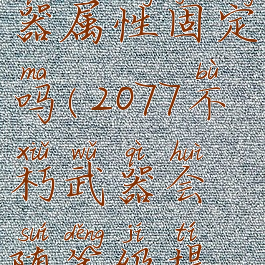 器属性固定
ma bù
吗(2077不
xiǔ wǔ qì huì
朽武器会
suí děng jí tí
随等级提